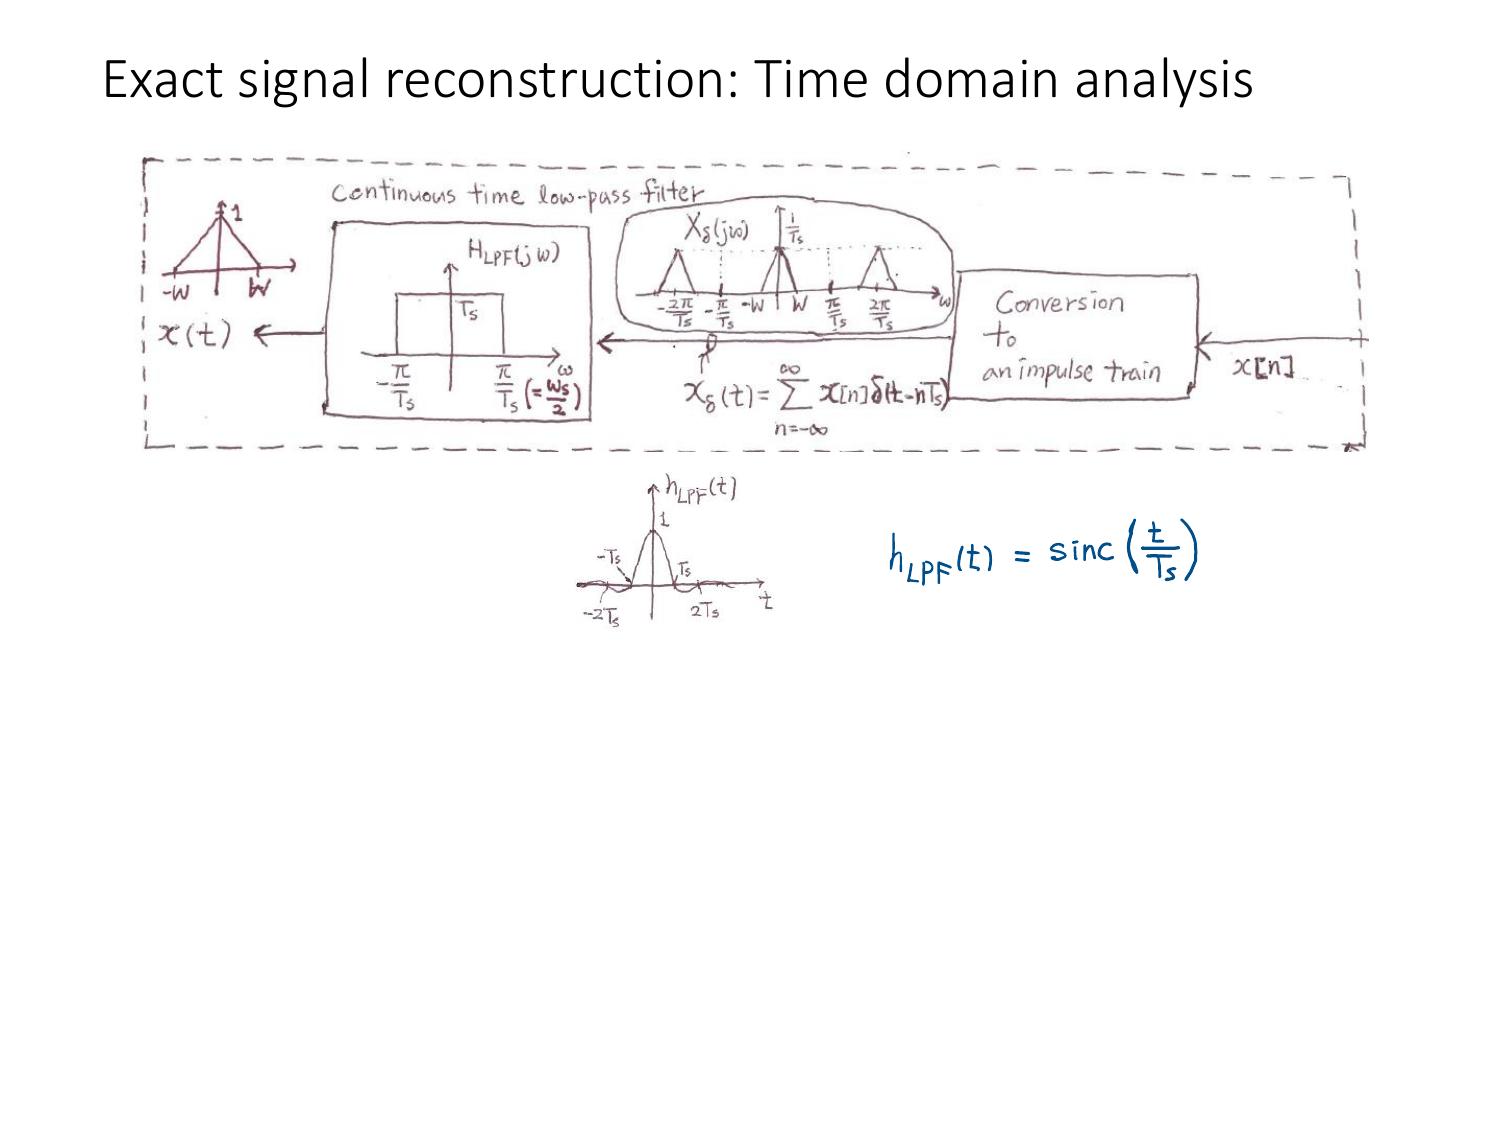 Exact signal reconstruction: Time domain analysis
Continuous time low-pass filter
1
-W W
x(t)
H_LPF(jω)
T_s
-π/T_s π/T_s (=ω_s/2) ω
X_δ(jω) 1/T_s
-2π/T_s -π/T_s -W W π/T_s 2π/T_s ω
x_δ(t)=∑_{n=-∞}^{∞} x[n]δ(t-nT_s)
Conversion
to
an impulse train
x[n]
h_LPF(t)
1
-T_s T_s
-2T_s 2T_s t
h_LPF(t) = sinc(t/T_s)